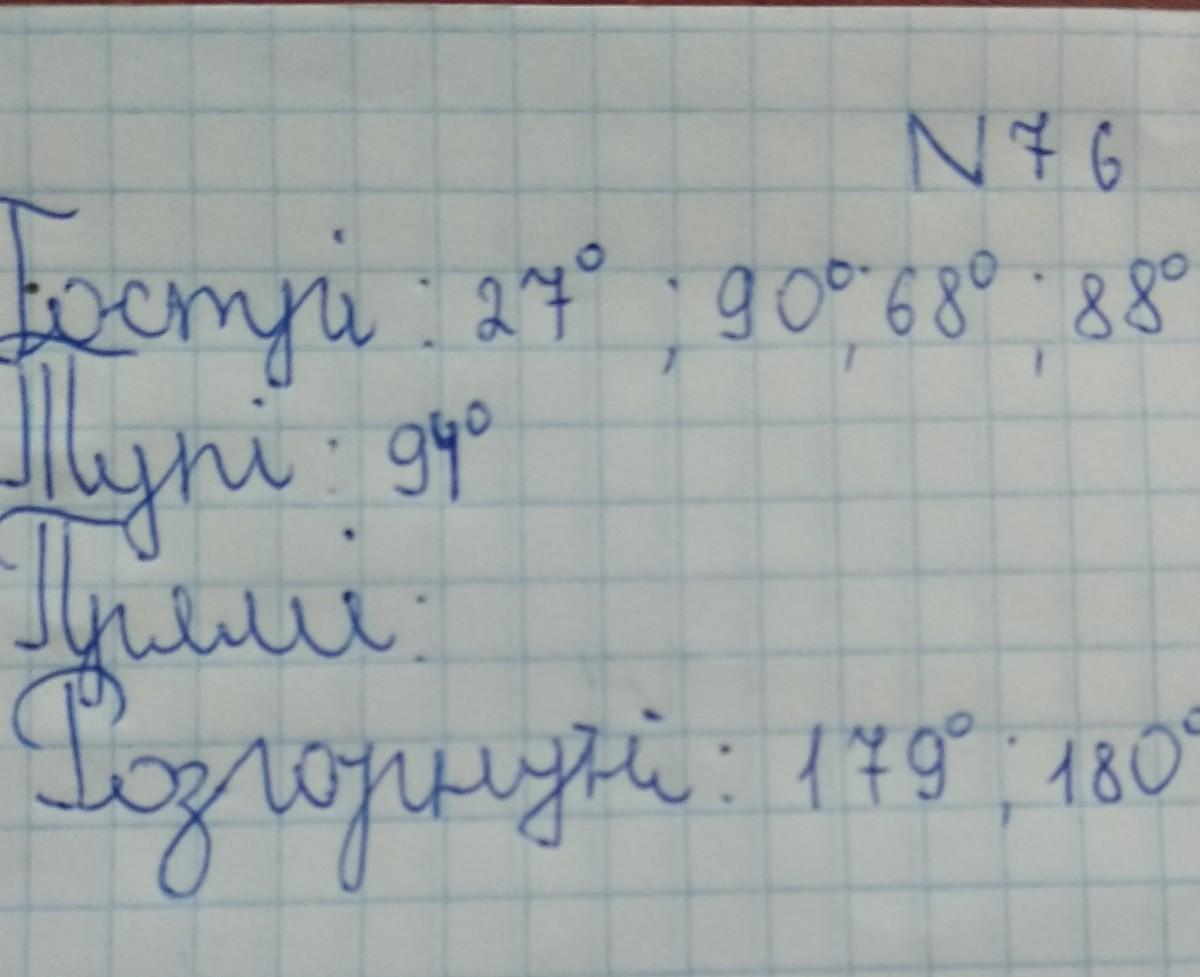 N 76
Гострі: 27°; 90°; 68°; 88°
Тупі: 94°
Прямі:
Розгорнуті: 179°; 180°